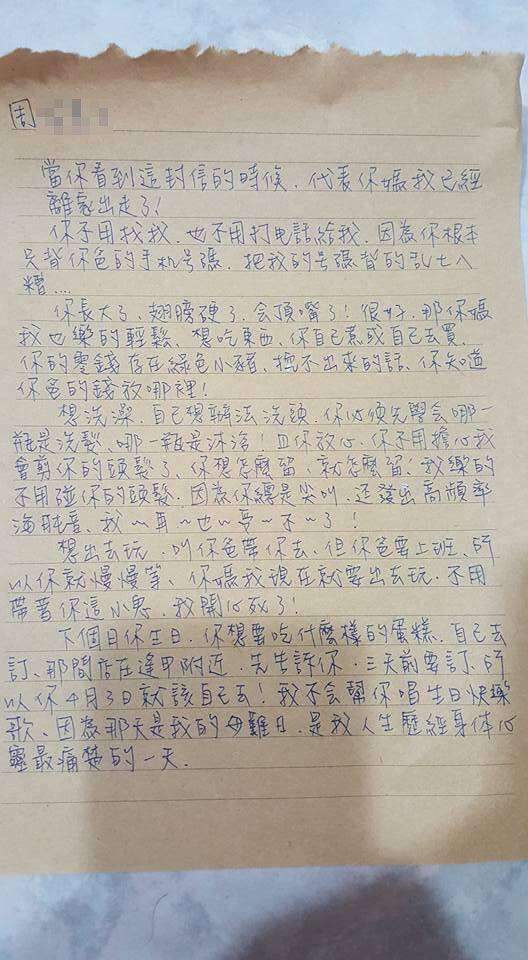 周
當你看到這封信的時候．代表你媽我已經
離家出走了！
你不用找我．也不用打电話給我．因為你根本
只背你爸的手机号碼．把我的号碼背的乱七八
糟....
你長大了、翅膀硬了．会頂嘴了！很好．那你媽
我也樂的輕鬆、想吃東西．你自己煮或自己去買．
你的零錢存在綠色小豬、挖不出來的話、你知道
你爸的錢放哪裡！
想洗澡．自己想辦法洗頭．你必須先學会哪一
瓶是洗髮、哪一瓶是沐浴！且你放心．你不用擔心我
會剪你的頭髮了、你想怎麼留．就怎麼留！我樂的
不用碰你的頭髮．因為你總是尖叫．还發出高頻率
海豚音、我～耳～也～受～不～了！
想出去玩．叫你爸帶你去、但你爸要上班、所
以你就慢慢等、你媽我現在就要出去玩．不用
帶著你這小鬼．我開心死了！
下個月你生日．你想要吃什麼樣的蛋糕．自己去
訂、那間店在逢甲附近．先告訴你．三天前要訂、所
以你4月3日就該自己去！我不会幫你唱生日快樂
歌、因為那天是我的母難日．是我人生歷經身体心
靈最痛楚的一天．